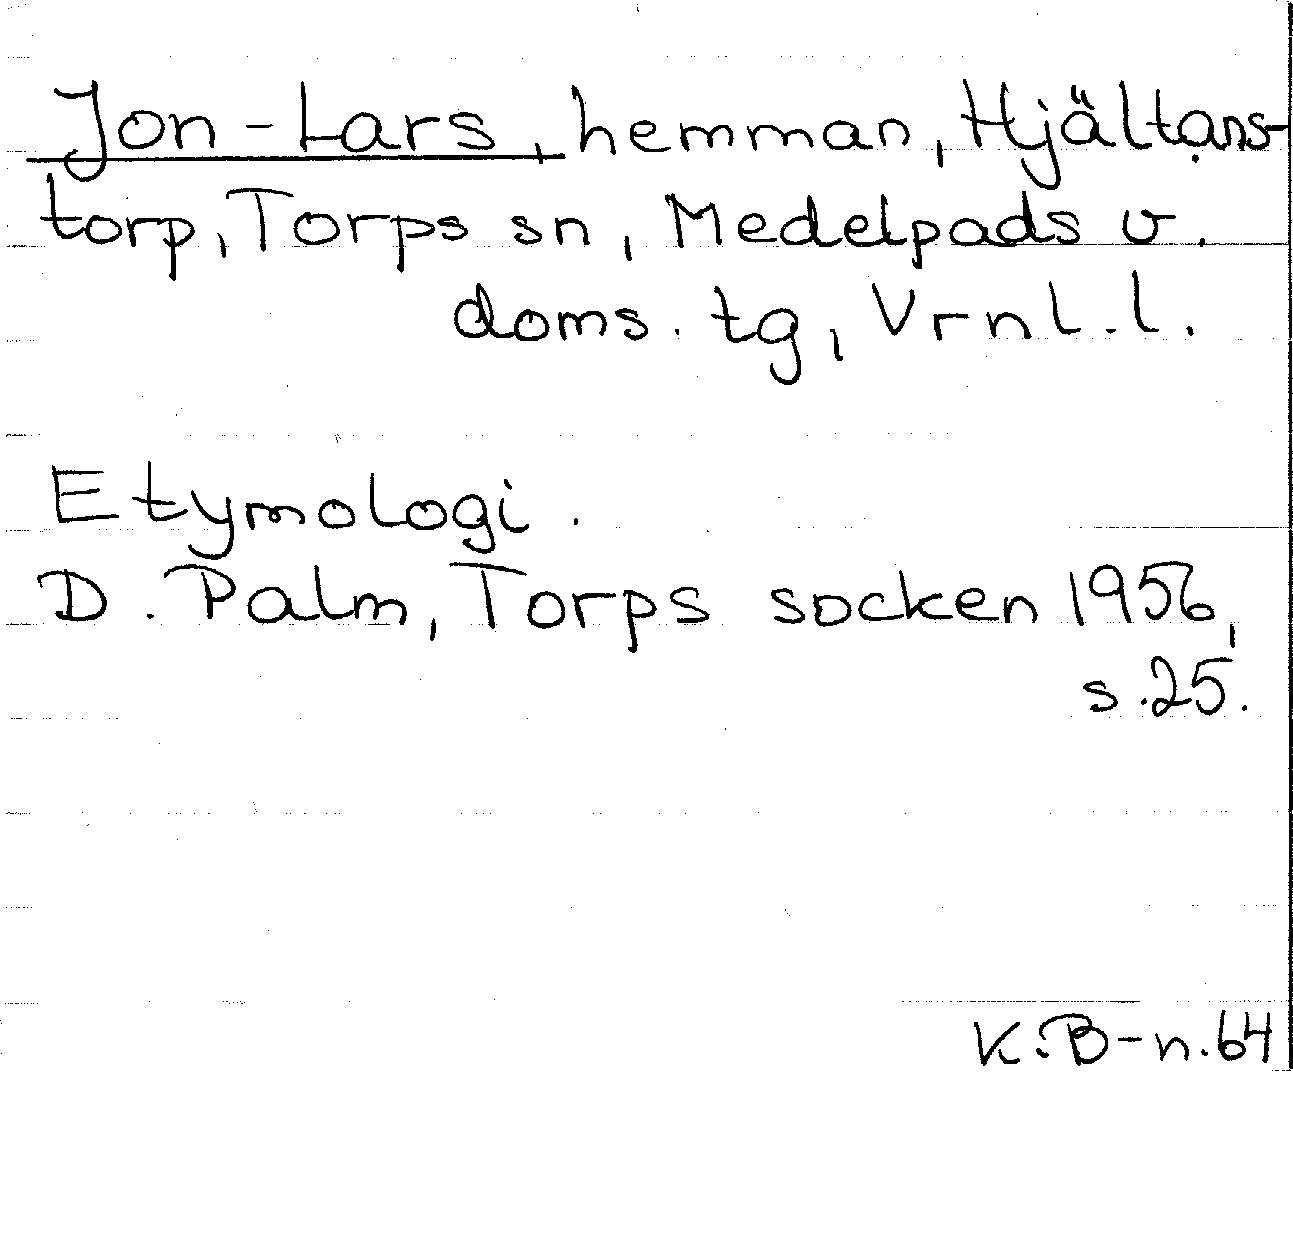 Jon-Lars, hemman, Hjältans-
torp, Torps sn, Medelpads v.
doms. tg, Vrnl. l.
Etymologi.
D. Palm, Torps socken 1956,
s. 25.
K:B-n. 64